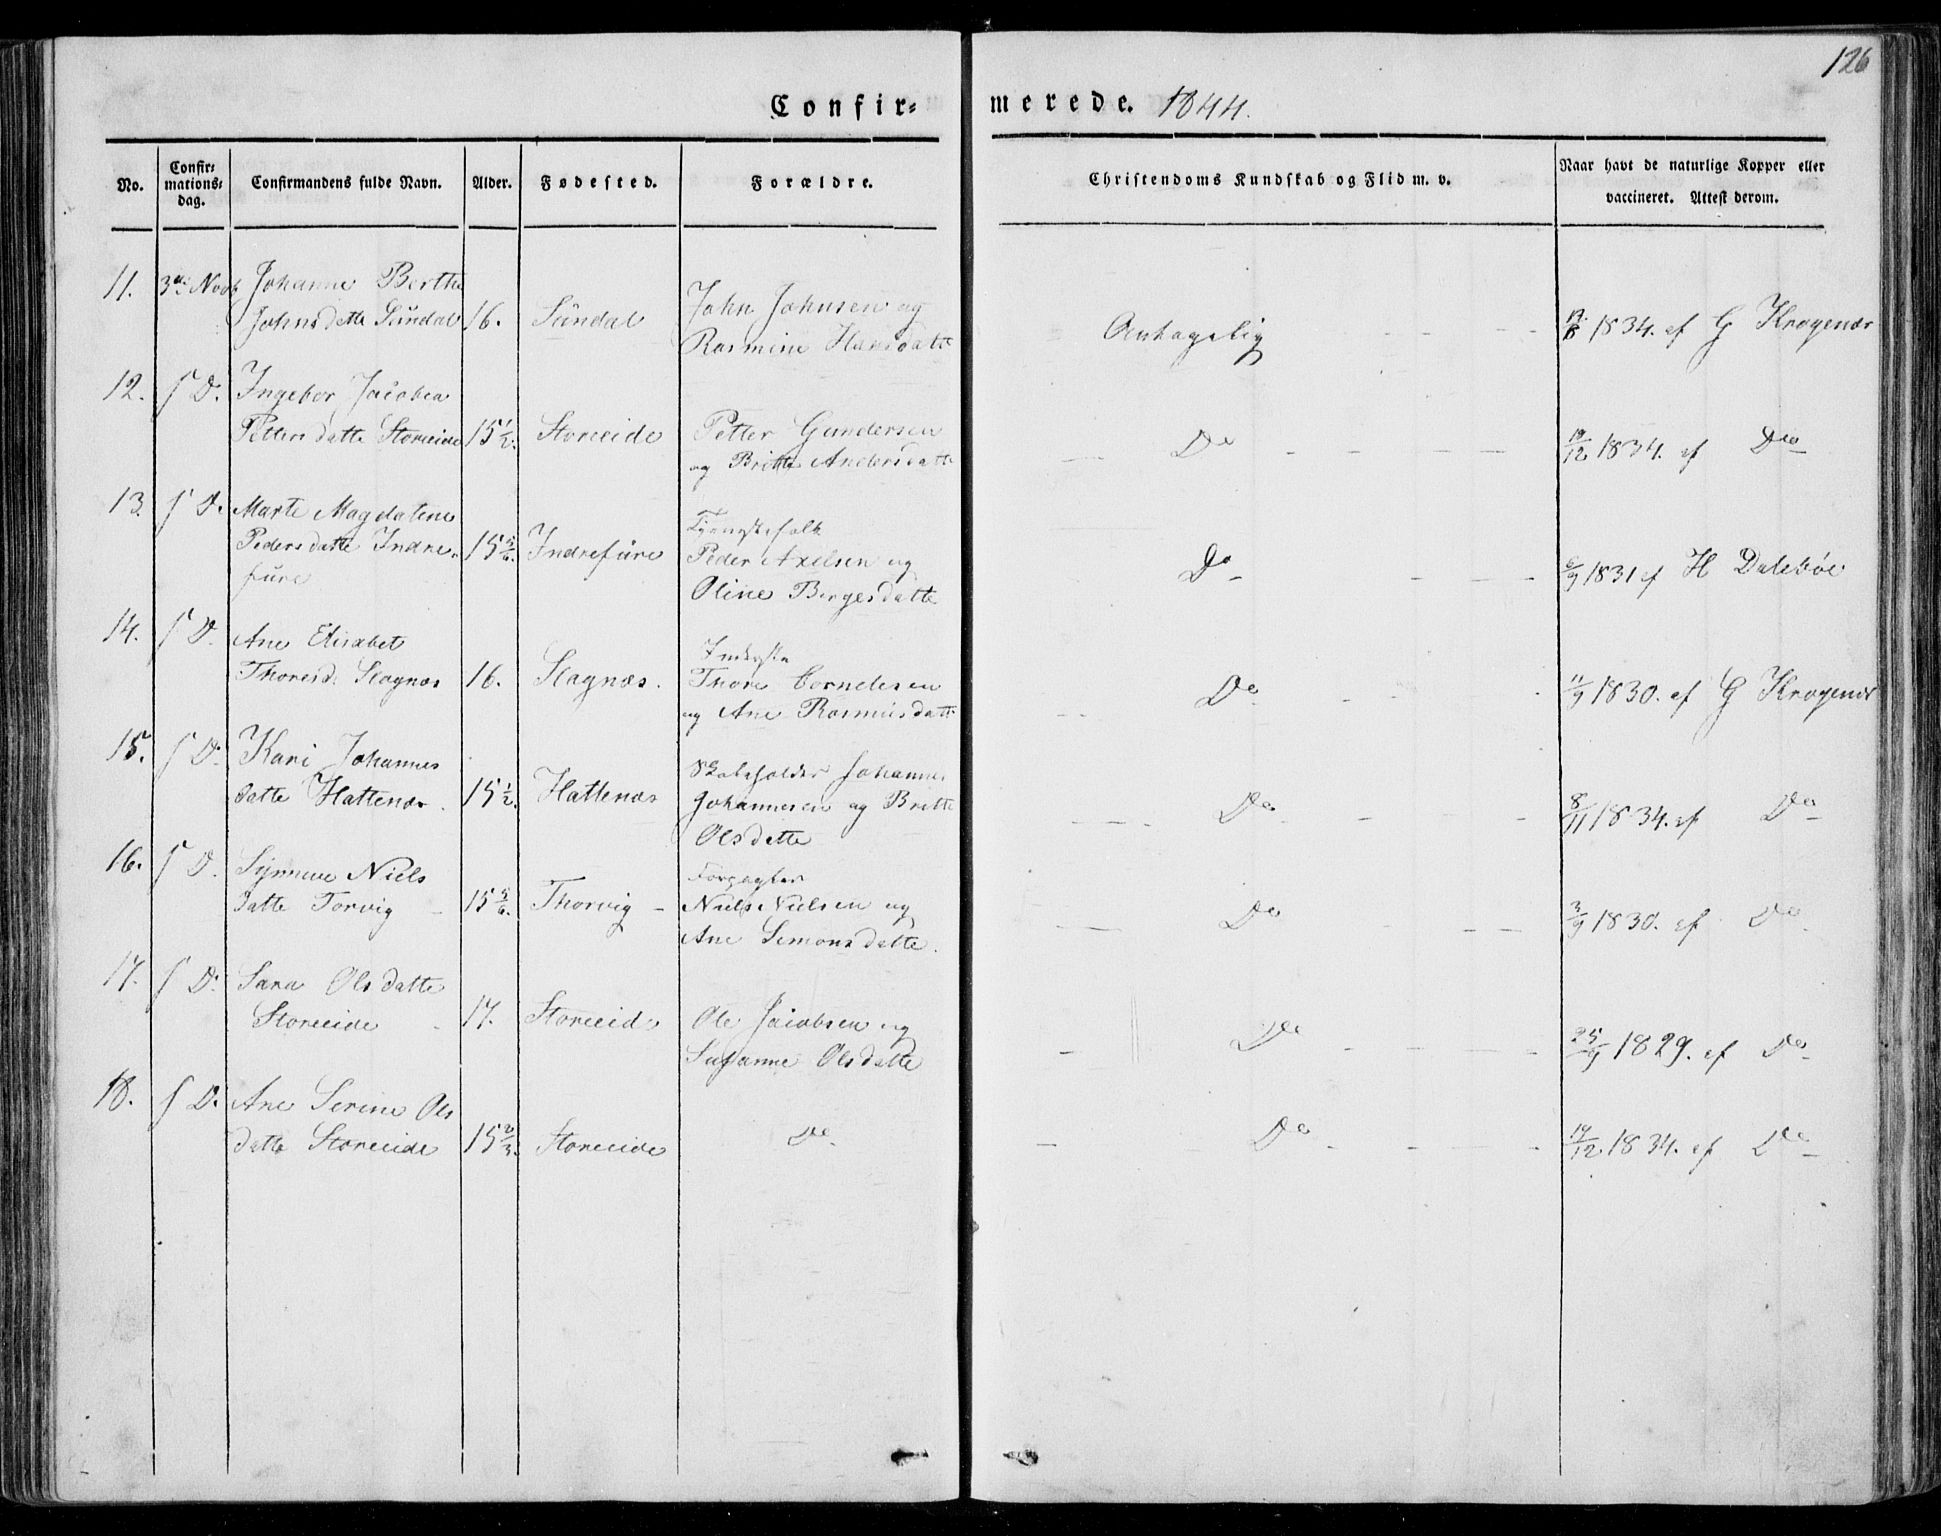 126
Confir= merede. 1844.
No.
Confir=
mations=
dag.
Confirmandens fulde Navn.
Alder.
Fødested.
Forældre.
Christendoms Kundskab og Flid m. v.
Naar havt de naturlige Kopper eller
vaccineret. Attest derom.
11. 3die Novb Johanne Berthe
Johnsdatte Sundal 16. Sundal John Johnsen og
Rasmine Hansdatte Antagelig 19/8 1834. af G Kragenæs
12. D. Ingebor Jacobea
Pettersdatte Storeeide 15 1/2. Storeeide Petter Gundersen
og Britte Andersdatte Do 19/12 1834. af Do
13. D. Marte Magdalene
Pedersdatte Indre-
fure 15 5/6. Indrefure Tjenestefolk
Peder Axelsen og
Oline Børgesdatte Do 6/9 1831 af H Dalebøe
14. D. Ane Elisabet
Thoresd: Slagnæs 16. Slagnæs. Inderste
Thore Cornelesen
og Ane Rasmusdatte Do 11/9 1830. af G Kragenæs
15. D. Kari Johannes
datte Hattenæs. 15 1/2. Hattenæs Johannes
Johannesen og Britte
Olsdatte Do 8/11 1834. af Do
16. D. Synneve Niels
datte Torvig 15 5/6. Thorvig Forpagter
Niels Nielsen og
Ane Simonsdatte. Do 3/9 1830. af Do
17. D. Sara Olsdatte
Storeeide 17. Storeeide Ole Jacobsen og
Susanne Olsdatte Do 25/9 1829. af Do
18. D. Ane Serine Ols
datte Storeeide 15 2/3. Storeeide Do Do 19/12 1834. af Do